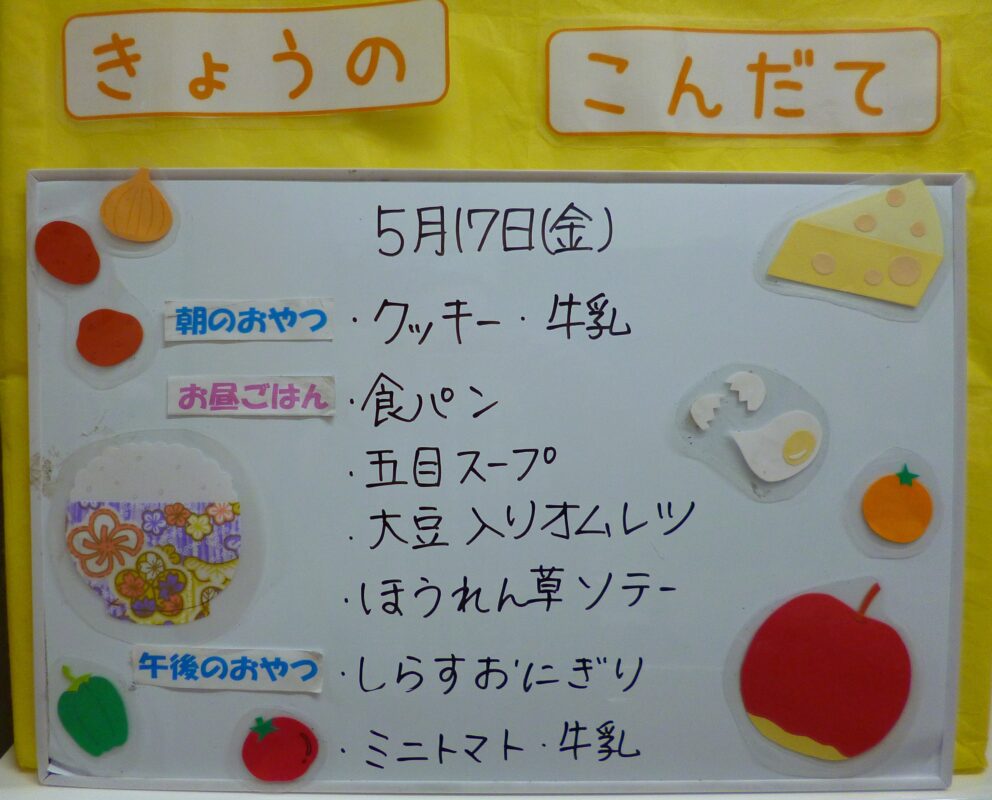 きょうの こんだて
5月17日(金)
朝のおやつ ・クッキー・牛乳
お昼ごはん ・食パン
・五目スープ
・大豆入りオムレツ
・ほうれん草ソテー
午後のおやつ ・しらすおにぎり
・ミニトマト・牛乳